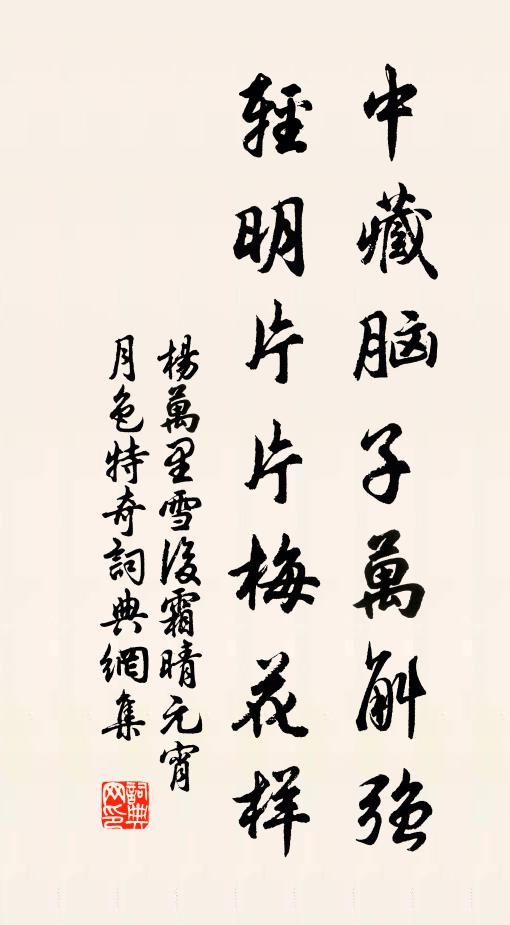 中藏脑子萬斛强
輕明片片梅花样
楊萬里雪後霜晴元宵
月色特奇詞典網集
詞典
网印